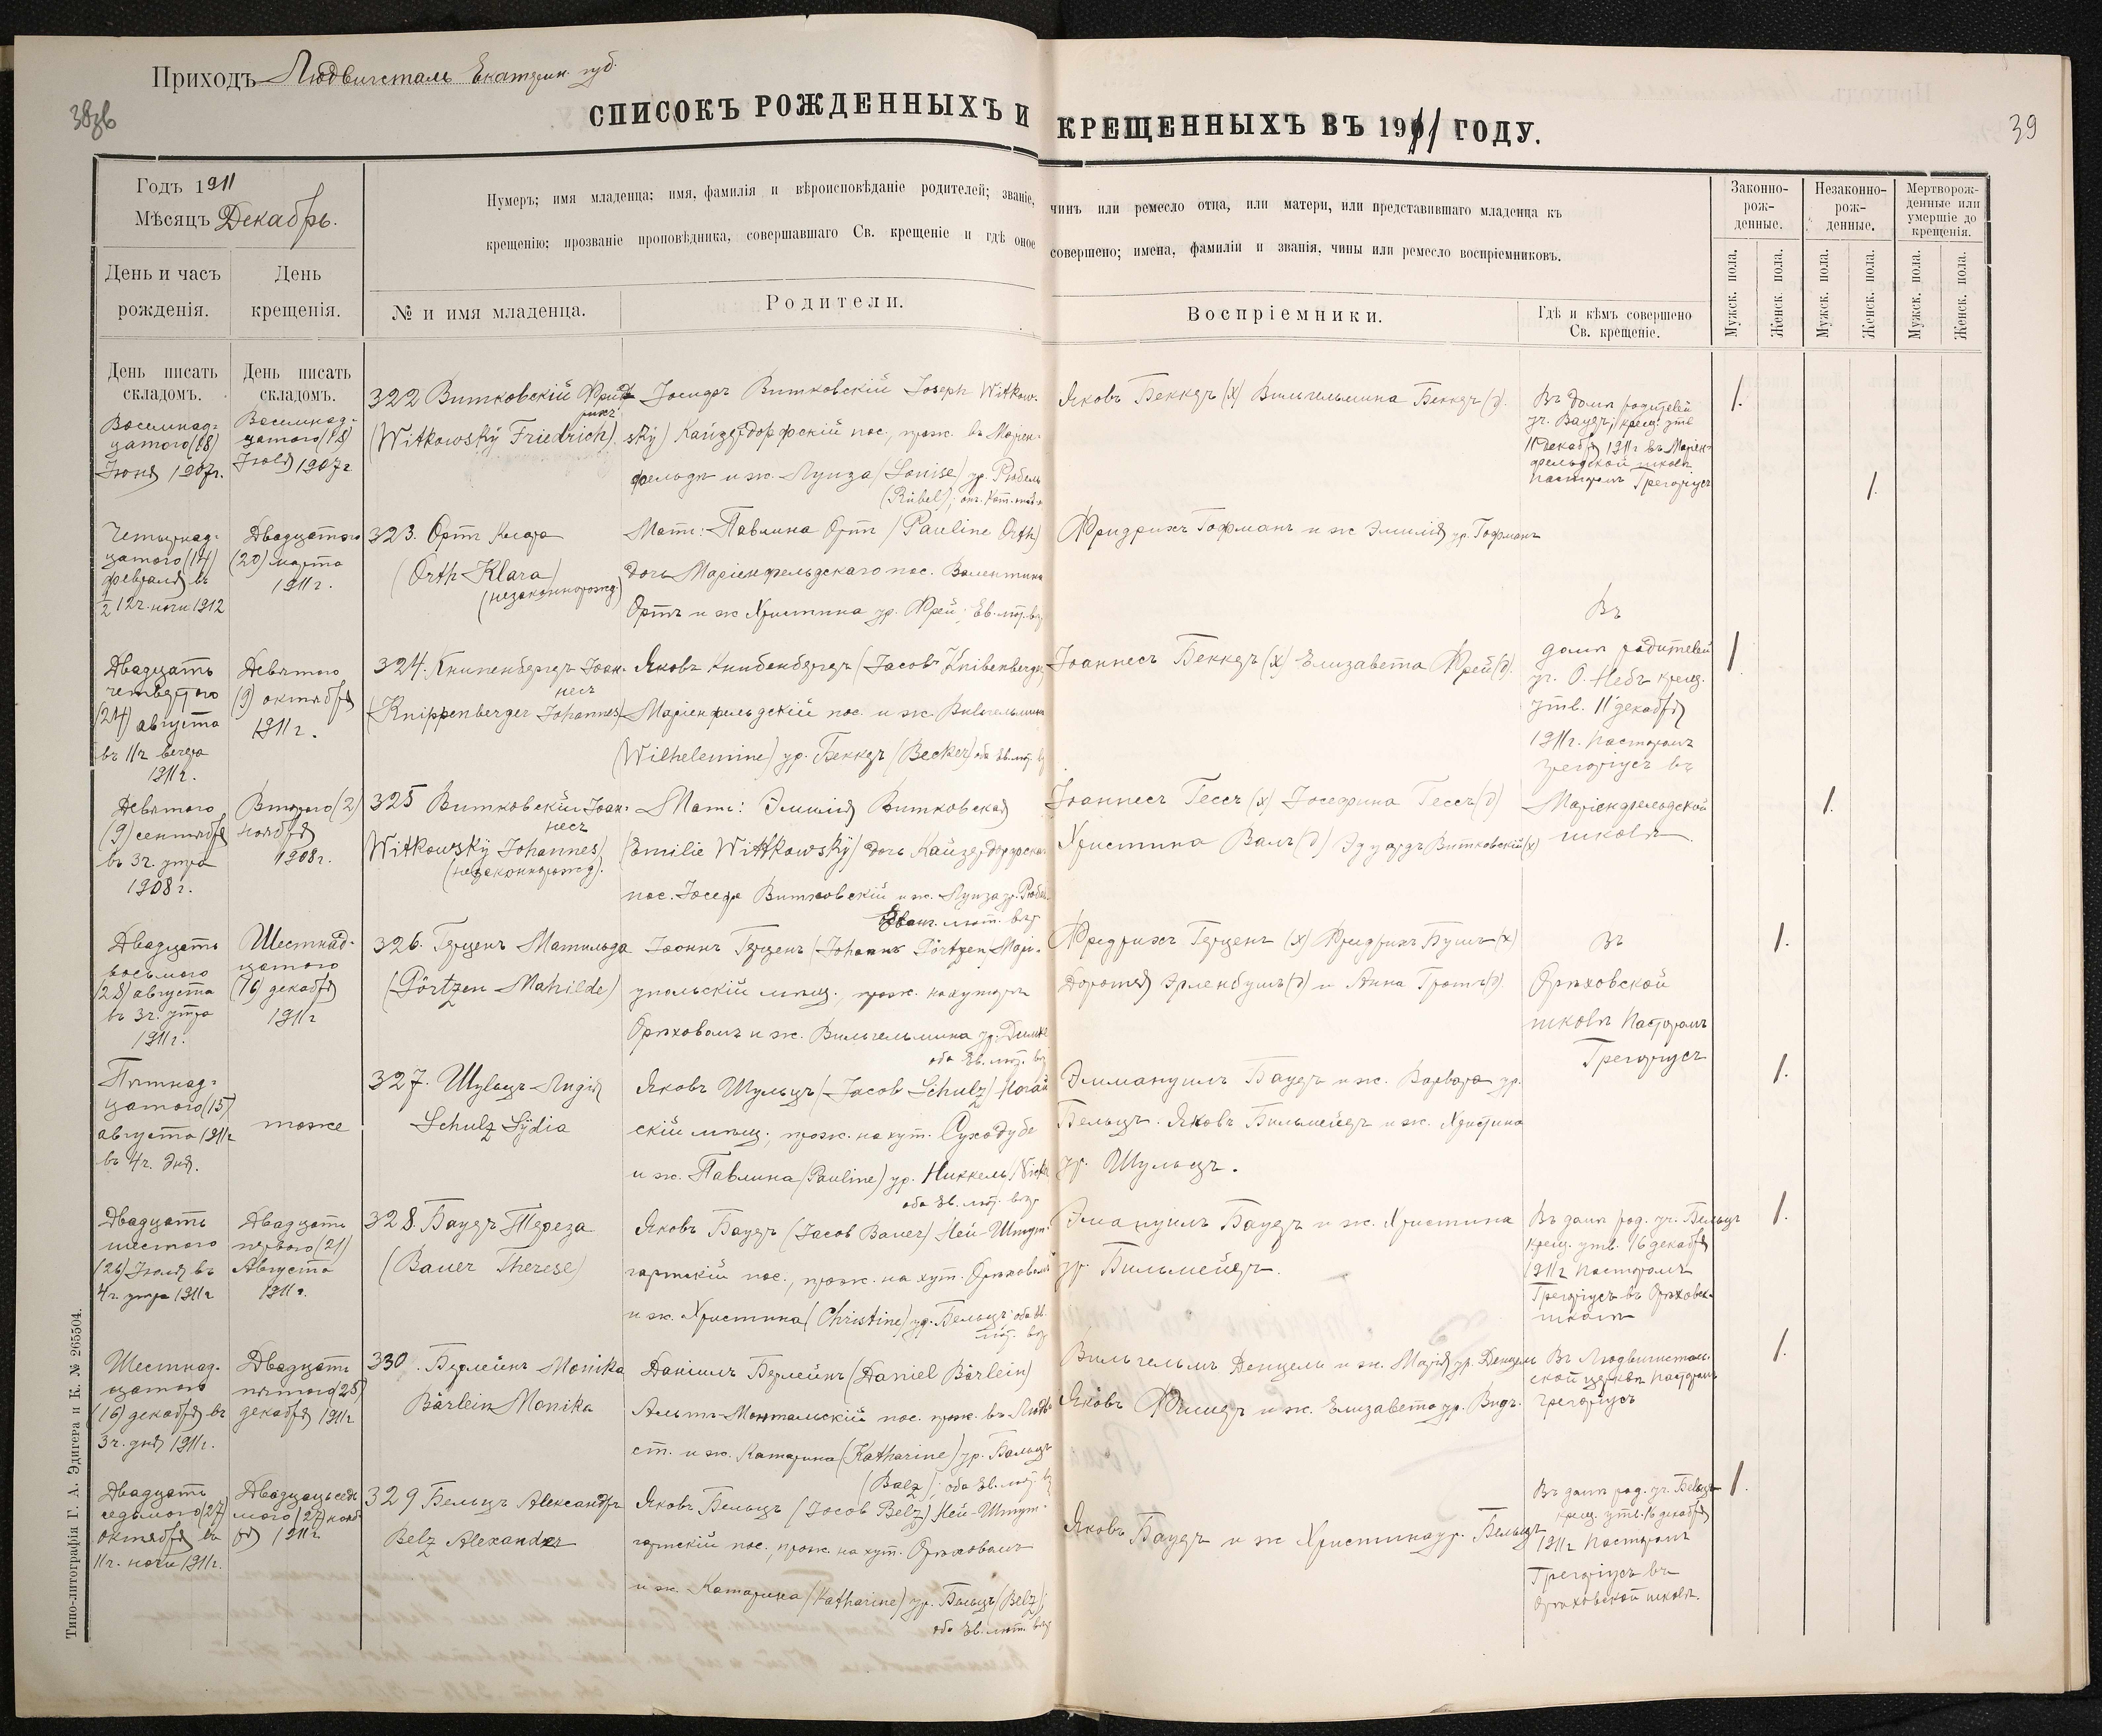 Приходъ Людвигсталь Екатерин. губ.
38об
39
СПИСОКЪ РОЖДЕННЫХЪ И КРЕЩЕННЫХЪ ВЪ 1911 ГОДУ.
Годъ 1911
Мѣсяцъ Декабрь.
Нумеръ; имя младенца; имя, фамилія и вѣроисповѣданіе родителей; званіе, чинъ или ремесло отца, или матери, или представившаго младенца къ
крещенію; прозваніе проповѣдника, совершавшаго Св. крещеніе и гдѣ оное совершено; имена, фамиліи и званія, чины или ремесло воспріемниковъ.
Законно-
рож-
денные.
Незаконно-
рож-
денные.
Мертворож-
денные или
умершіе до
крещенія.
День и часъ
рожденія.
День
крещенія.
№ и имя младенца.
Родители.
Воспріемники.
Гдѣ и кѣмъ совершено
Св. крещеніе.
Мужск. пола.
Женск. пола.
Мужск. пола.
Женск. пола.
Мужск. пола.
Женск. пола.
День писать
складомъ.
День писать
складомъ.
Восемнад-
цатого (18)
Іюня 1907г.
Восемнад-
цатого (18)
Іюля 1907г
322 Витковскій Фрид
рихъ
(Witkowsky Friedrich)
Іосифъ Витковскій Joseph Witkow-
sky) Кайзердорфскій пос., прож. въ Маріен-
фельдѣ и ж. Луиза (Louise) ур. Рибель
(Rübel);
Яковъ Беккеръ (х) Вильгельмина Беккеръ (д).
Въ домѣ родителей
уч. Бауеръ; крещ. утв.
11 декабря 1911г въ Маріен-
фельдской школѣ
Пасторомъ Грегоріусъ
1.
Четырнад-
цатого (14)
февраля въ
1/2 12ч. ночи 1912
Двадцатого
(20) марта
1911г.
323. Ортъ Клара
(Orth Klara)
(незаконнорожд)
Мать: Павлина Ортъ (Pauline Orth)
дочь Маріенфельдскаго пос. Валентина
Ортъ и ж Христина ур. Фрей; Ев. лют. вѣр
Фридрихъ Гофманъ и ж Эмилія ур. Гофманъ
1.
Двадцать
четвертого
(24) августа
въ 11ч вечера
1911г.
Девятого
(9) октября
1911г.
324. Книпенбергеръ Іоан-
несъ
(Knippenberger Johannes)
Яковъ Книбенбергеръ (Jacob Knibenberger
Маріенфельдскій пос. и ж. Вильгельмина
(Wilhelemine) ур. Беккеръ (Becker) оба Ев. лют. в
Іоаннесъ Беккеръ (х) Елизавета Фрей (д).
Въ
домѣ родителей
уч. О. Небъ крещ.
утв. 11 декабря
1911г. Пасторомъ
Грегоріусъ въ
Маріенфельдской
школѣ
1
Девятого
(9) сентября
въ 3ч. утра
1908г.
Второго (2)
ноября
1908г.
325 Витковскій Іоан-
несъ
Witkowsky Johannes)
(незаконнорожд).
Мать: Эмилія Витковская
(Emilie Wittkowsky) дочь Кайзердорфска
пос. Іосефа Витковскій и ж. Луиза ур. Рибель
Еван. лют. вѣр
Іоаннесъ Гессъ (х) Іосефина Гессъ (д)
Христина Валъ (д) Эдуардъ Витковскій (х)
1.
Двадцать
восьмого
(28) августа
въ 3ч. утра
1911г.
Шестнад-
цатого
(16) декабря
1911г
326. Герценъ Матильда
(Görtzen Mahilde)
Іоаннъ Герценъ (Johann Görtzen) Марі-
упольскій мѣщ., прож. на хуторѣ
Орѣховомъ и ж. Вильгельмина ур.
оба Ев. лют. вѣр
Фредрихъ Герценъ (х) Фридрихъ Бушъ (х)
Доротея Эрленбушъ (д) и Анна Гротъ (д)
Въ
Орѣховской
школѣ Пасторомъ
Грегоріусъ
1.
Пятнад-
цатого (15)
августа 1911г
въ 4ч. дня.
тоже
327. Шульцъ Лидія
Schulz Lydia
Яковъ Шульцъ (Jacob Schulz) Ногай
скій мѣщ., прож. на хут. Суходубе
и ж. Павлина (Pauline) ур. Никкель (Nicke
оба Ев. лют. вѣр
Эммануилъ Бауеръ и ж. Варвара ур.
Бельцъ. Яковъ Бильмейеръ и ж. Христина
ур. Шульцъ.
1.
Двадцать
шестого
(26) Іюля въ
4ч. утра 1911г
Двадцать
первого (21)
Августа
1911г.
328. Бауеръ Тереза
(Bauer Therese)
Яковъ Бауеръ (Jacob Bauer) Ней-Штут-
гартскій пос., прож. на хут. Орѣховомъ
и ж. Христина (Christine) ур. Бельцъ оба Ев.
лют. вѣр
Эмануилъ Бауеръ и ж. Христина
ур. Бильмейеръ.
Въ домѣ род. уч. Бельцъ
крещ. утв. 16 декабря
1911г Пасторомъ
Грегоріусъ въ Орѣховск.
школѣ
1.
Шестнад-
цатого
(16) декабря въ
3ч. дня 1911г.
Двадцать
пятого (25)
декабря 1911г
330. Берлейнъ Monika
Bärlein Monika
Даніилъ Берлейнъ (Daniel Bärlein)
Альтъ-Монтальскій пос. прож. въ Людв
ст. и ж. Катарина (Katharine) ур. Бальцъ
(Balz); оба Ев. лют. в
Вильгельмъ Денцель и ж. Марія ур. Денцель
Яковъ Фишеръ и ж. Елизавета ур. Видъ.
Въ Людвигсталь-
ской церкви Пасторомъ
Грегоріусъ
1.
Двадцать
седьмого (27)
октября въ
11ч. ночи 1911г.
Двадцать седь
мого (27) нояб
ря 1911г.
329 Бельцъ Александръ
Belz Alexander
Яковъ Бельцъ (Jacob Belz) Ней-Штут-
гартскій пос., прож. на хут. Орѣховомъ
и ж. Катарина (Katharine) ур. Бельцъ (Belz);
оба Ев. лют. вѣр
Яковъ Бауеръ и ж Христина ур. Бельцъ
Въ домѣ род. уч. Бельцъ
крещ. утв. 16 декабря
1911г Пасторомъ
Грегоріусъ въ
Орѣховской школѣ.
1.
Типо-литографія Г. А. Эдигера и К. № 265504.